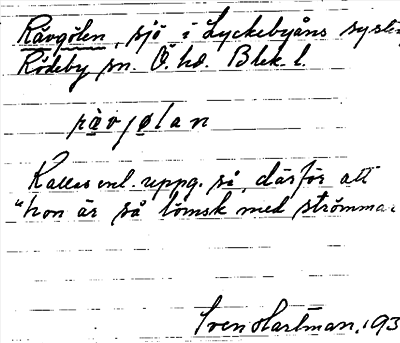 Rävgölen, sjö i Lyckebyåns syste
Rödeby sn. Ö. hd. Blek. l.
rävjølan
Kallas enl. uppg. så, därför att
"hon är så lömsk med strömmar
Sven Hartman, 193